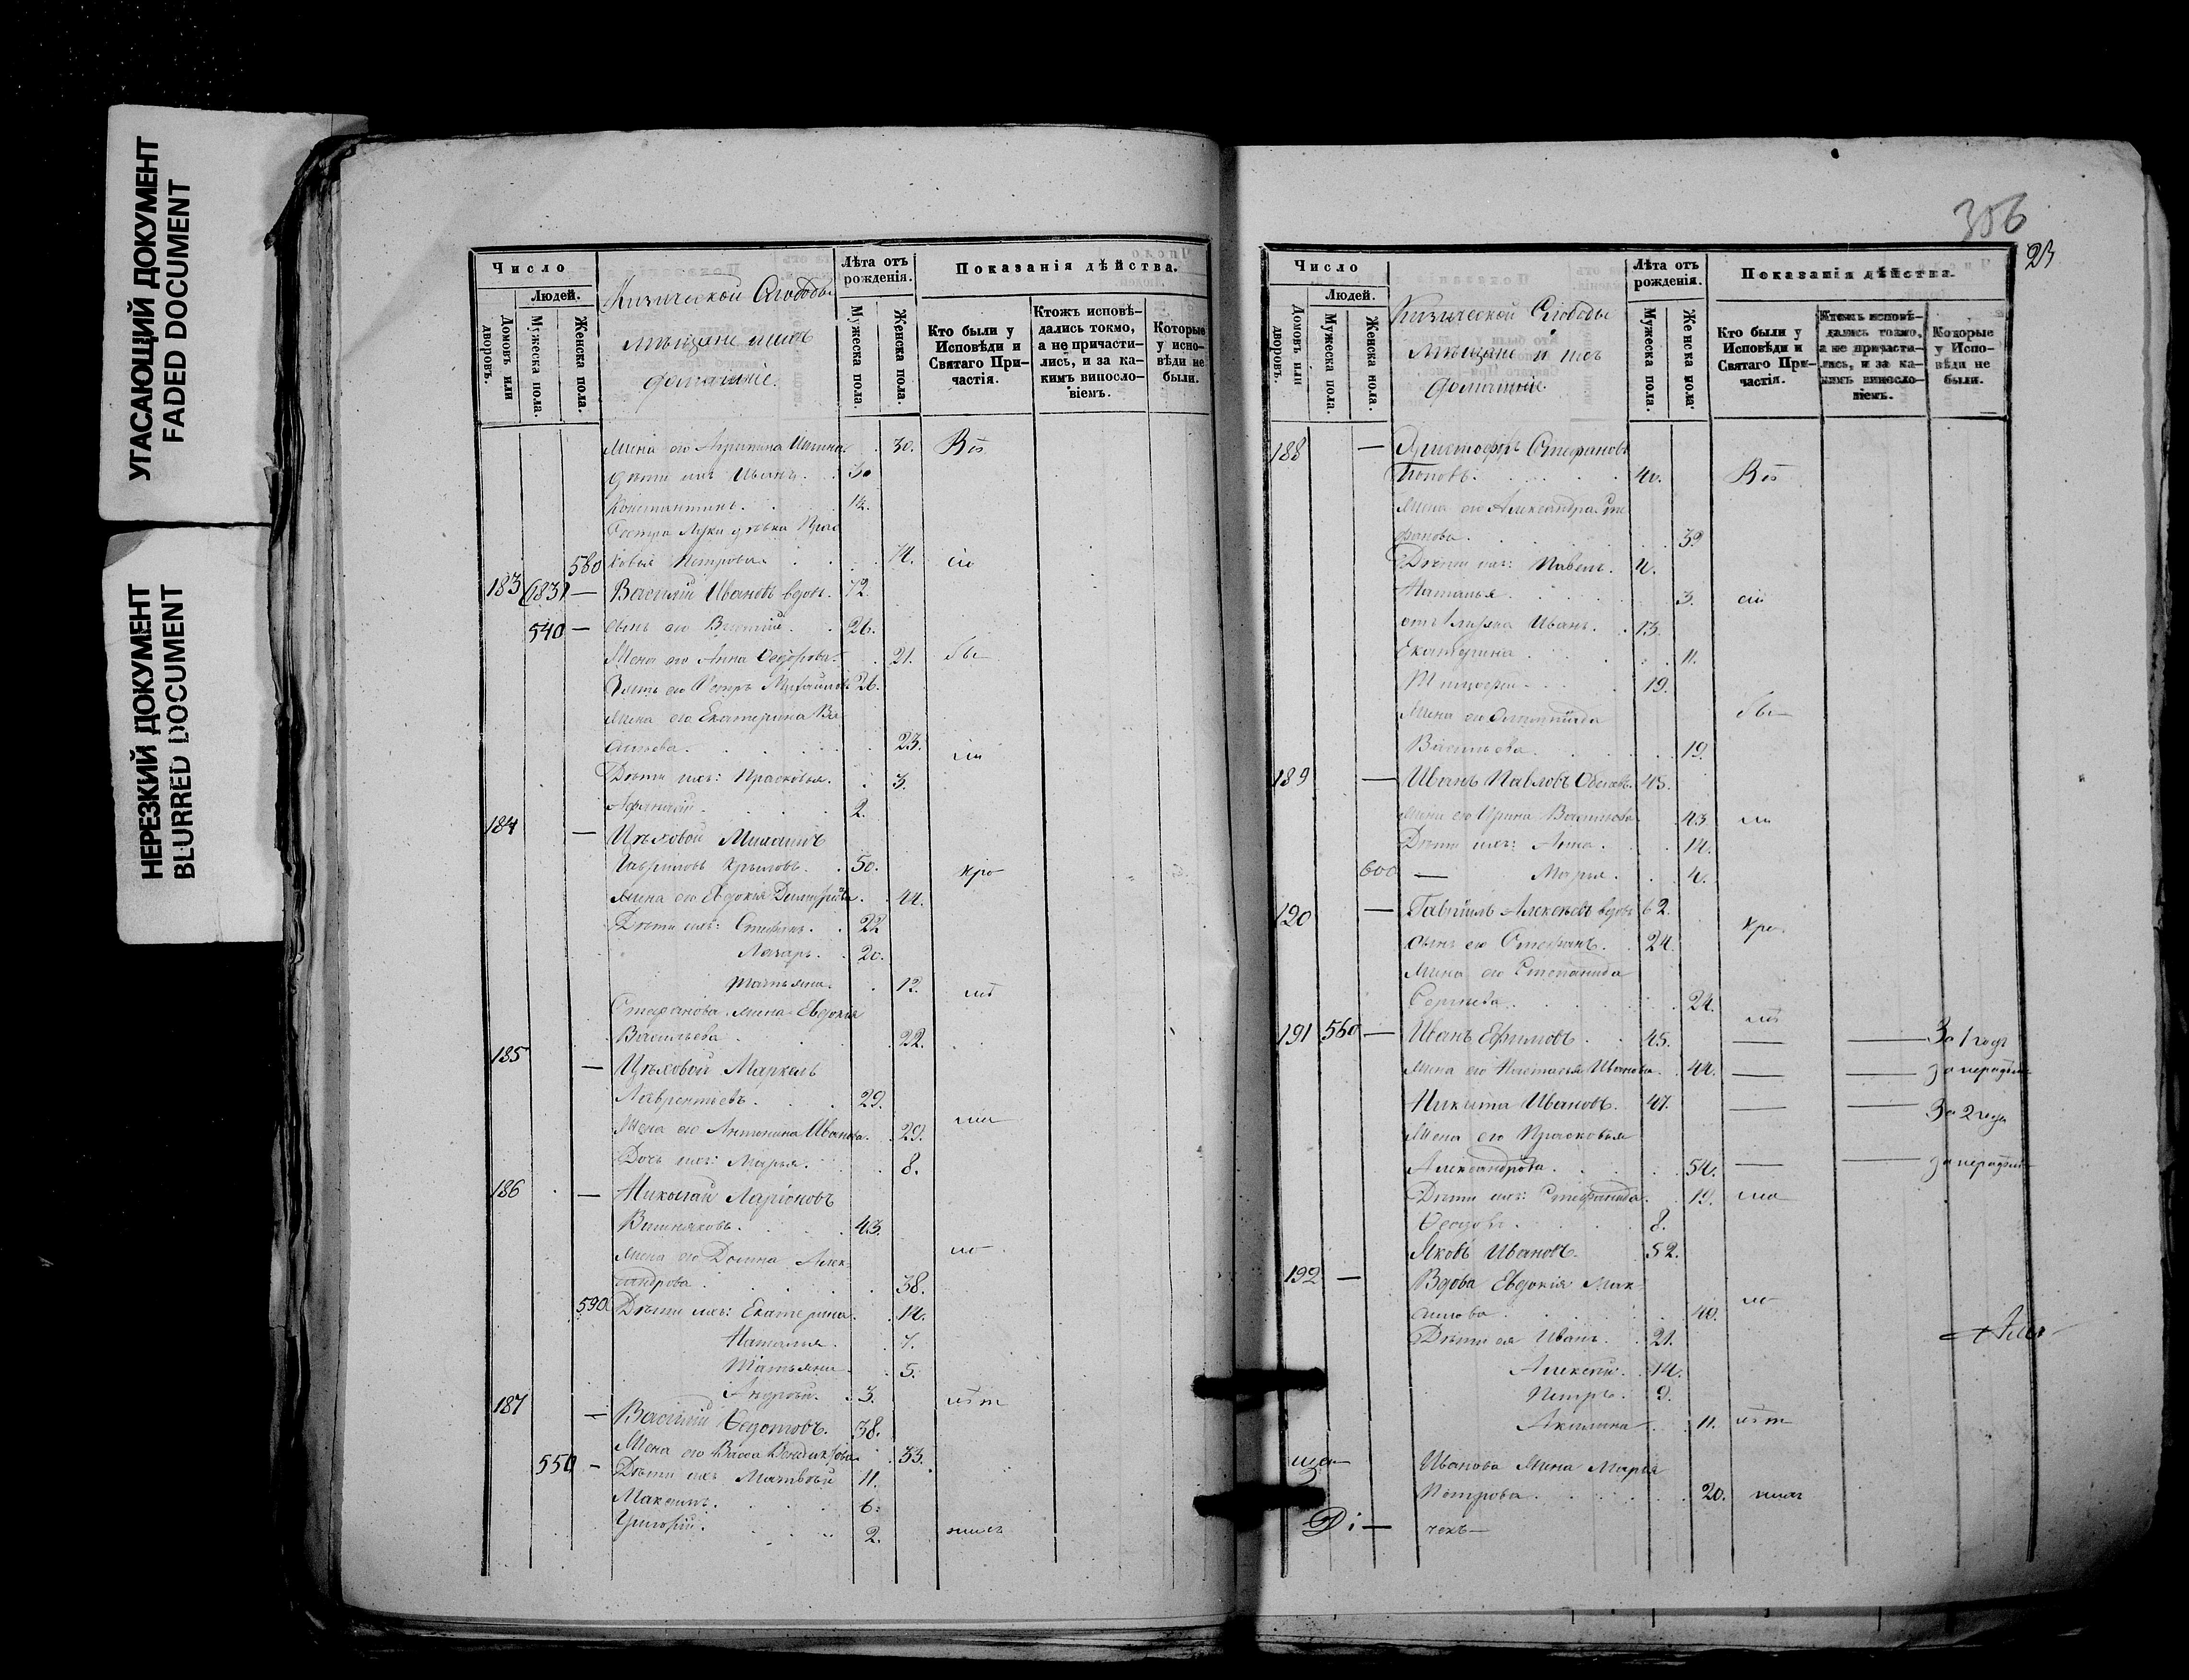 УГАСАЮЩИЙ ДОКУМЕНТ
FADED DOCUMENT
НЕРЕЗКИЙ ДОКУМЕНТ
BLURRED DOCUMENT
Число
Людей.
Домовъ или дворовъ.
Мужеска пола.
Женска пола.
Кизической Слободы
мѣщане и ихъ
домашніе.
Лѣта отъ рожденія.
Мужеска пола.
Женска пола.
Показанія дѣйства.
Кто были у Исповѣди и Святаго Причастія.
Ктожъ исповѣдались токмо, а не причастились, и за какимъ винословіемъ.
Которые у исповѣди не были.
Жена его 30.
Дѣти ихъ Иванъ. 30
Константинъ. 14.
Сестра Луки дѣвка Прас
580 ковья Петрова. 74.
183 (183) — Василій Ивановъ вдовъ. 72.
540 — сынъ его Василій. 26.
Жена его Анна Ѳедорова. 21. бы
Зять его Петръ Михайловъ 26.
Жена его Екатерина Ва
сильева. 23. ли
Дѣти ихъ: Прасковья. 3.
Афанасій. 2.
184 — Цѣховой Михаилъ
Гавриловъ Крыловъ. 50. кро
Жена его Евдокія 44.
Дѣти ихъ: Степанъ. 22
Лазарь. 20.
Татьяна. 12.
Стефанова жена Евдокія
Васильева 22.
185 — Цѣховой Маркелъ
Лаврентьевъ. 29.
Жена его Антонина Иванова. 29.
Дочь ихъ: Марья. 8.
186 — Николай Ларіоновъ
Вишняковъ. 43.
Жена его Домна Алек
сандрова. 38.
590 Дѣти ихъ: Екатерина. 14.
Наталья. 7.
Татьяна. 5.
Андрей. 3.
187 — Василій Ѳедотовъ. 38.
Жена его Васса 33.
550 — Дѣти ихъ Матвѣй 11.
Максимъ. 6.
Григорій. 2.
356
23
Число
Людей.
Домовъ или дворовъ.
Мужеска пола.
Женска пола.
Кизической Слободы
Мѣщане и ихъ
домашніе
Лѣта отъ рожденія.
Мужеска пола.
Женска пола.
Показанія дѣйства.
Кто были у Исповѣди и Святаго Причастія.
Ктожъ исповѣдались токмо, а не причастились, и за какимъ винословіемъ.
Которые у Исповѣди не были.
188 — Христофоръ Стефановъ
Поповъ. 40.
Жена его Александра Сте
фанова. 39
Дѣти ихъ: Павелъ. 4.
Наталья. 3.
Иванъ. 13.
Екатерина 11.
Тимофей 19.
Жена его Олимпіада бы
Васильева. 19.
189 — Иванъ Павловъ 45.
Жена его Ирина Васильева 43. ли
Дѣти ихъ: Анна. 14.
600 — Марья. 4.
120 — Гавріилъ Алексѣевъ вдовъ 62. кро
сынъ его Стефанъ. 24.
Жена его Степанида
Сергѣева. 24.
191 560 — Иванъ Ефимовъ. 45. — — За 1 годъ
Жена его Настасья Иванова. 44. — —
Никита Ивановъ. 47. — — За 2 года
Жена его Прасковья
Александрова. 54. — —
Дѣти ихъ: Стефанида. 19.
8.
Яковъ Ивановъ. 52.
192 — Вдова Евдокія Мак
симова. 40.
Дѣти ея Иванъ. 21.
Алексѣй. 14.
Петръ. 9.
Акилина 11.
Иванова жена Марья
Петрова. 20.